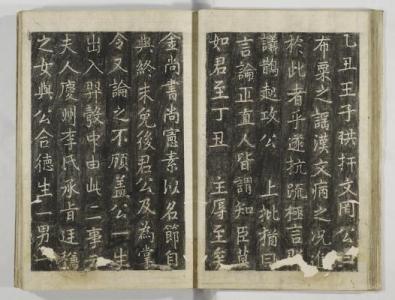 乙丑王子珙扞文罔公曰
布粟之謡漢文病之况
於此者乎遂抗䟽極言
議鵲起攻公 上批猶曰
言論正直人皆謂知臣莫
如君至丁丑 主辱至矣
金尚書尚憲素以名節自
與終末免後君公及為掌
令又論之不顧盖公一生
出入羿彀中由此二事
夫人慶州李氏承㫖廷
之女與公合德生一男二